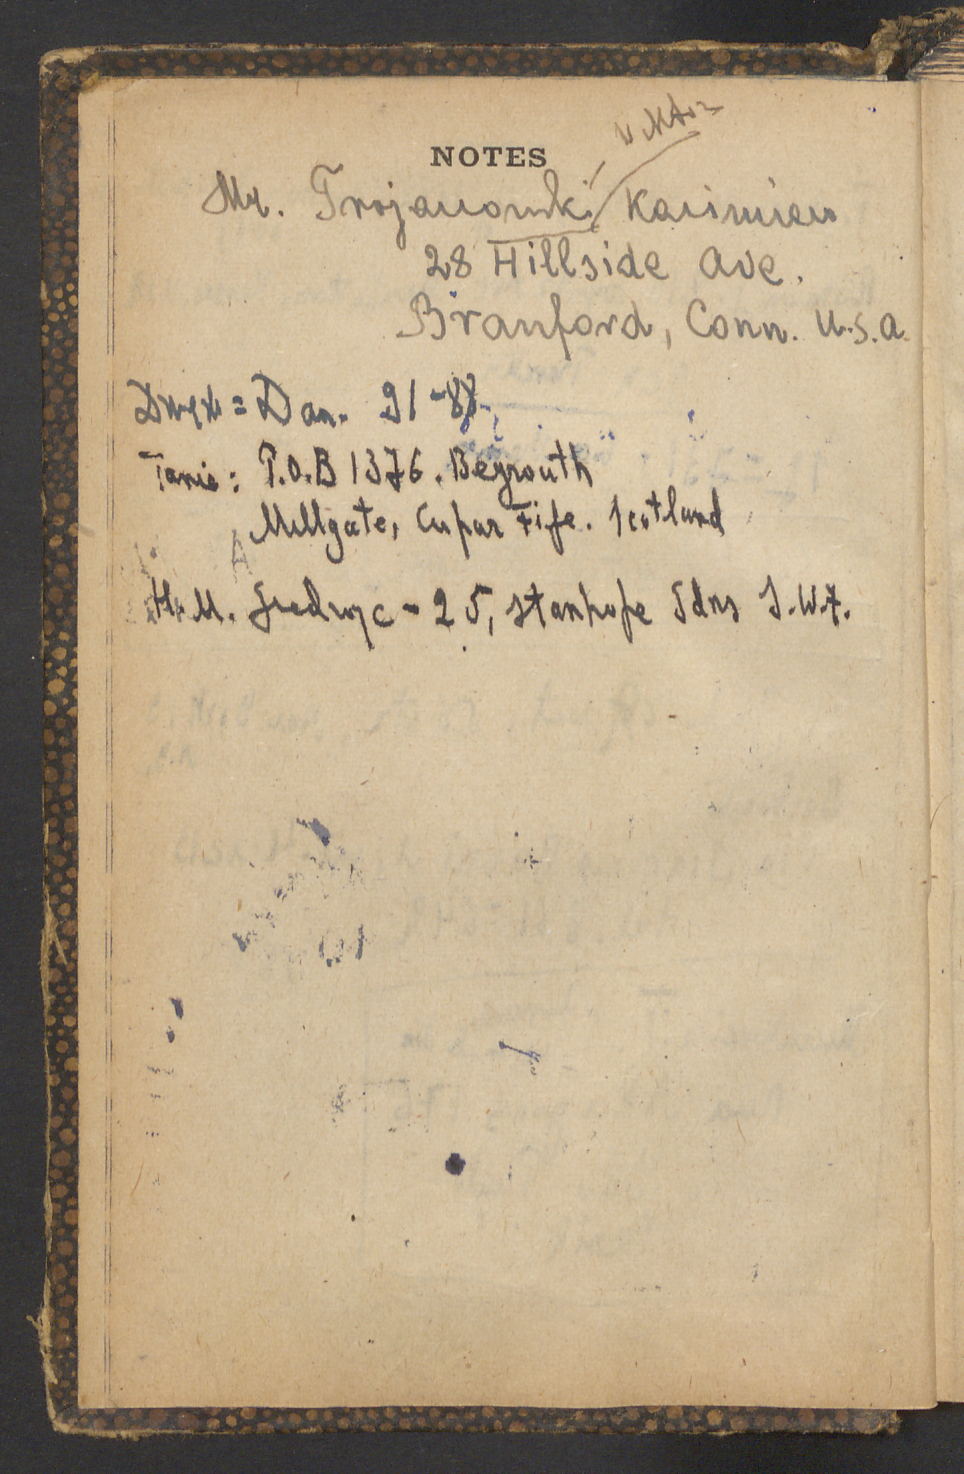 NOTES
Mr. Trojanowski Kazimierz
28 Hillside Ave.
Branford, Conn. U.S.A
= Dan. 91-88
Tania: P.O.B 1376. Beyrouth
Millgate, Cupar Fife. Scotland
H. M. Giedroyc - 25, Stanhope Gdns S.W.7.